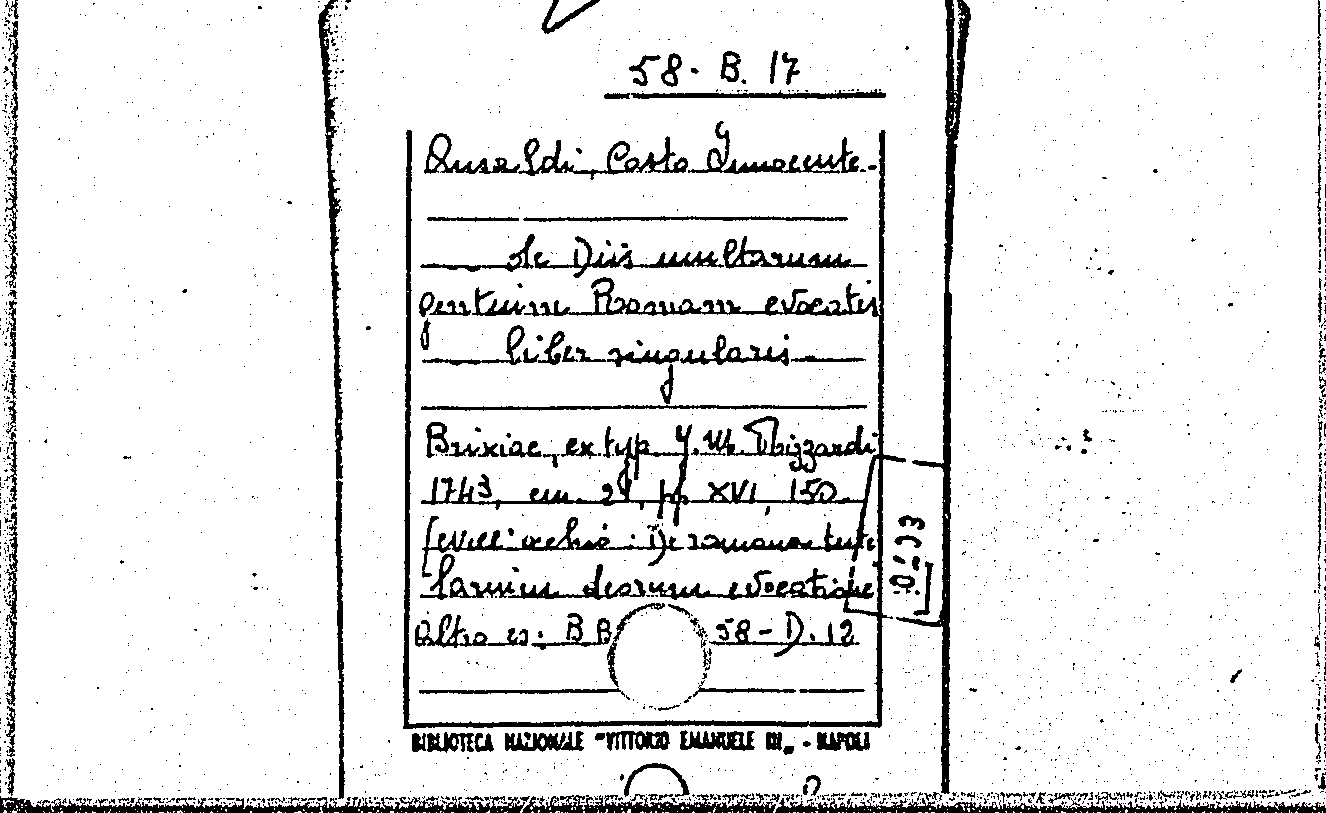 58. B. 17
Ansaldi, Casto Innocente.
de Diis multarum
gentium Romam evocatis
liber singularis.
Brixiae, ex typ. J. M. Rizzardi
1743, cm. 21, pp. XVI, 150.
[evell' occhio: De romana tute
larium deorum evocatione
altro es: B B 58-D.12
BIBLIOTECA NAZIONALE "VITTORIO EMANUELE III„ - NAPOLI